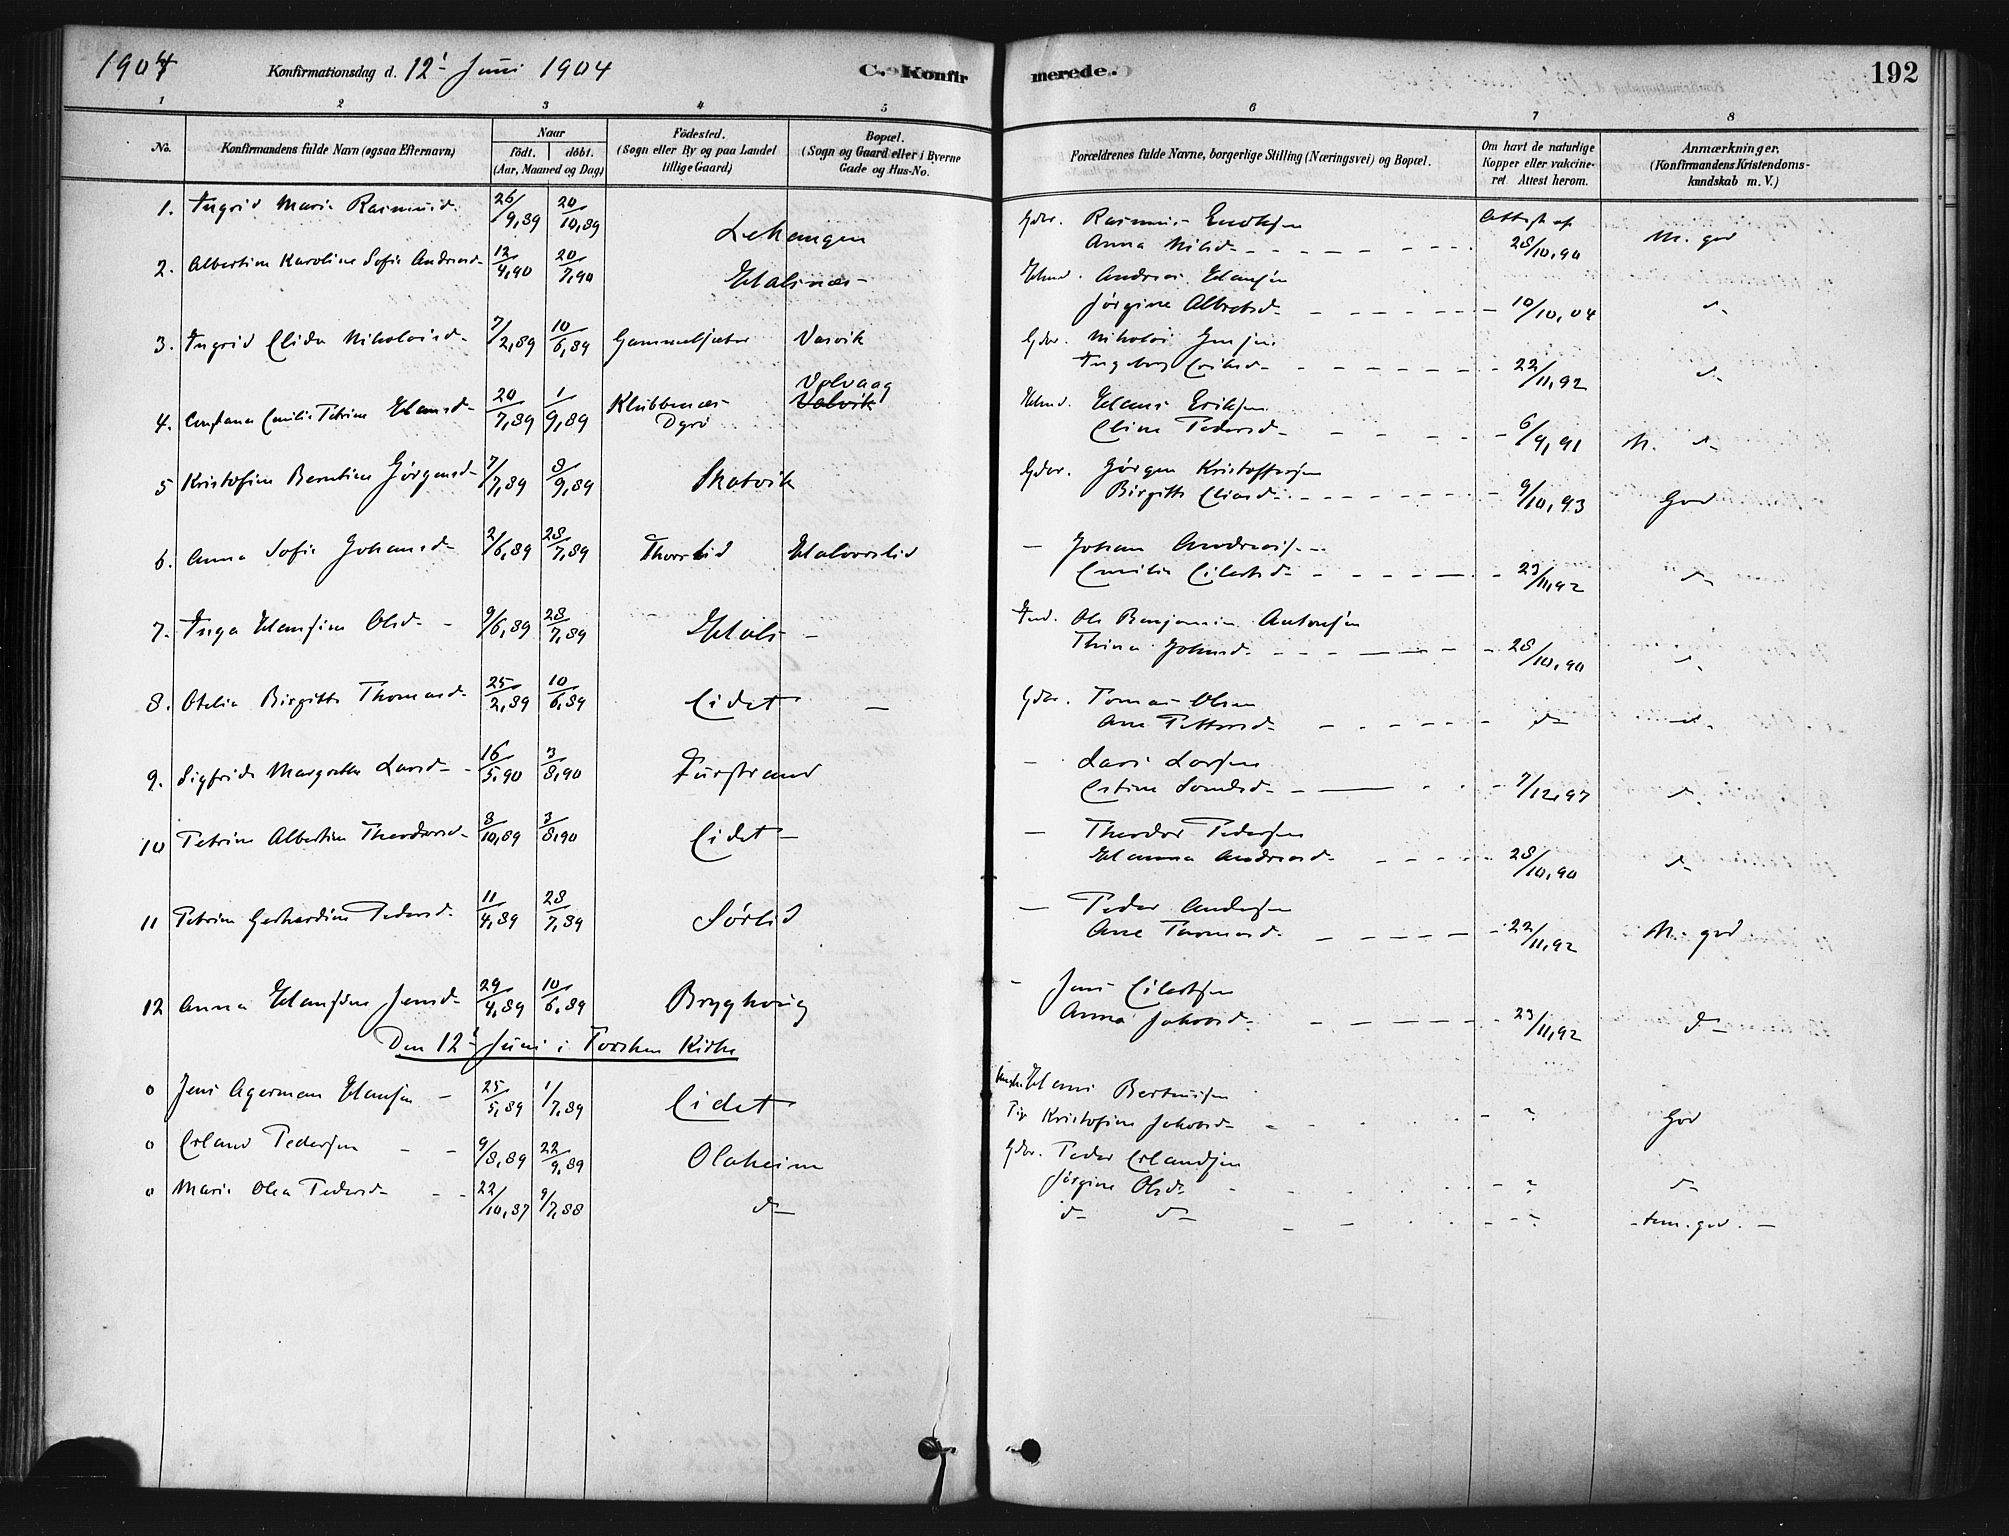 1904 Konfirmationsdag d. 12te Juni 1904 C. Konfirmerede. 192
1 2 3 4 5 6 7 8
No. Konfirmandens fulde Navn (ogsaa Efternavn) Naar födt. döbt. (Aar, Maaned og Dag) Födested. (Sogn eller By og paa Landet tillige Gaard) Bopæl. (Sogn og Gaard eller i Byerne Gade og Hus-No. Forældrenes fulde Navne, borgerlige Stilling (Næringsvei) og Bopæl. Om havt de naturlige Kopper eller vakcineret. Attest herom. Anmærkninger. (Konfirmandens Kristendomskundskab m. V.)
1. Ingrid Marie Rasmusd. 26/9,89 20/10,89 Lekangen Gdbr. Rasmus
Anna Nilsd. Attest af 28/10,90 M. god
2. Albertine Karoline Sofie Andreasd. 12/4,90 20/7,90 Halsnæs Andreas Hansen
Jørgine Albretsd. 10/10,04 d
3. Ingrid Elida Nikolaisd. 7/2,89 10/6,89 Gammelsæter Vasvik Gdbr. Nikolai Jensen
Ingeborg 22/11,92 d
4. Emilie Petrine Hansd. 20/7,89 1/9,89 Klubbenæs Dyrø Volvaag Hans Eriksen
Eline Pedersd. 6/9,91 M. d
5 Kristofine Berntine Jørgensd. 7/7,89 8/9,89 Skatvik Gdbr. Jørgen Kristoffersen
Birgitte Eliasd. 9/10,93 God
6. Anna Sofie Johansd. 2/6,89 28/7,89 Thorslid Halvorslid - Johan Andreas.
Emilie Eilertsd. 23/11,92 d
7. Inga Hansine Olsd. 9/6,89 28/7,89 Hals Ole Benjamin Antonsen
Thina Johnsd. 28/10,90 d
8. Otelie Birgitte Thomasd. 25/2,89 10/6,89 Eidet Gdbr. Tomas Olsen
Ane Pettersd. d d
9. Sigfride Margrethe Larsd. 16/5,90 3/8,90 Furstrand - Lars Larsen
7/12,97 d
10 Petrine Albertine Theodorsd. 8/10,89 3/8,90 Eidet - Theodor Pedersen
Hanna Andreasd. 28/10,90 d
11 Petrine Gerhardine Pedersd. 11/4,89 28/7,89 Sørlid - Peder Andersen
Ane Thomasd. 22/11,92 M. god
12 Anna Hansine Jensd. 29/4,89 10/6,89 Bryghaug - Jens Eilertsen
Anna Jakobsd. 23/11,92 d
Den 12te Juni i Torsken Kirke
0 Jens Agerman Hansen 25/5,89 1/7,89 Eidet Hans
Kristofine Jakobsd. ? God
0 Erland Pedersen 9/8,89 22/9,89 Olaheim Gdbr. Peder Erlandsen
Jørgine Olsd. ? d
0 Marie Olea Pedersd. 22/10,87 9/7,88 d d d ? tem. god.